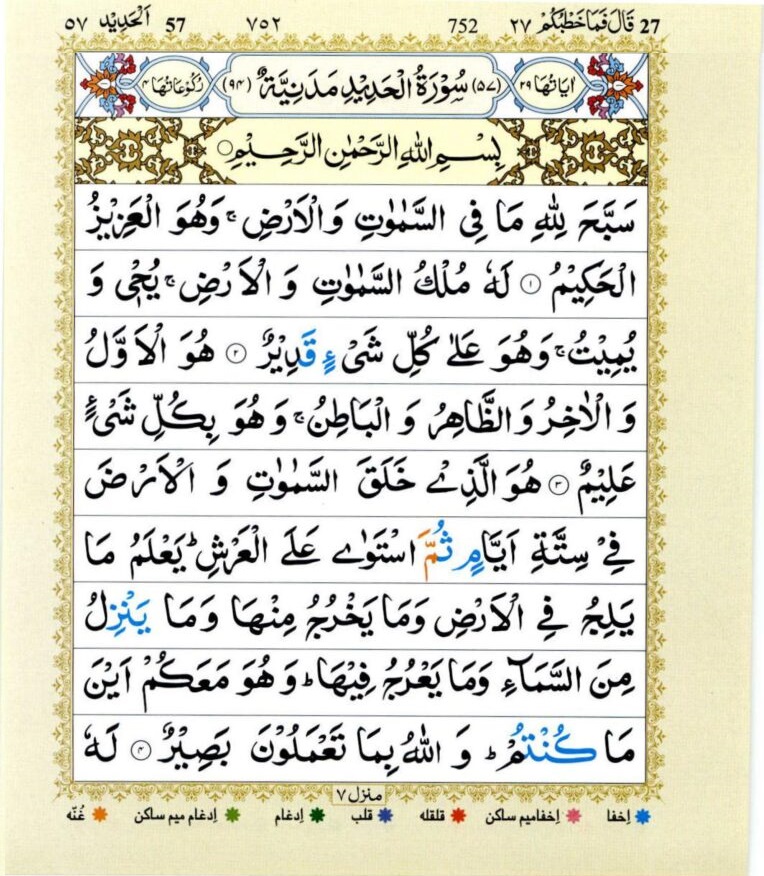 27 قَالَ فَمَا خَطْبُكُمْ ٢٧ 752 ٧٥٢ 57 اَلْحَدِيْد ٥٧
اٰيَاتُهَا ٢٩ (٥٧) سُوْرَةُ الْحَدِيْدِ مَدَنِيَّةٌ (٩٤) رُكُوْعَاتُهَا ٤
بِسْمِ اللهِ الرَّحْمٰنِ الرَّحِيْمِ
سَبَّحَ لِلّٰهِ مَا فِى السَّمٰوٰتِ وَالْاَرْضِ ۚ وَهُوَ الْعَزِيْزُ
الْحَكِيْمُ ۝١ لَهٗ مُلْكُ السَّمٰوٰتِ وَ الْاَرْضِ ۚ يُحْيٖ وَ
يُمِيْتُ ۚ وَهُوَ عَلٰى كُلِّ شَىْءٍ قَدِيْرٌ ۝٢ هُوَ الْاَوَّلُ
وَ الْاٰخِرُ وَ الظَّاهِرُ وَ الْبَاطِنُ ۚ وَ هُوَ بِكُلِّ شَىْءٍ
عَلِيْمٌ ۝٣ هُوَ الَّذِىْ خَلَقَ السَّمٰوٰتِ وَ الْاَرْضَ
فِىْ سِتَّةِ اَيَّامٍ ثُمَّ اسْتَوٰى عَلَى الْعَرْشِ ؕ يَعْلَمُ مَا
يَلِجُ فِى الْاَرْضِ وَمَا يَخْرُجُ مِنْهَا وَمَا يَنْزِلُ
مِنَ السَّمَآءِ وَمَا يَعْرُجُ فِيْهَا ؕ وَ هُوَ مَعَكُمْ اَيْنَ
مَا كُنْتُمْ ؕ وَ اللهُ بِمَا تَعْمَلُوْنَ بَصِيْرٌ ۝٤ لَهٗ
منزل ٧
اِخفا اِخفامیم ساکن قلقله قلب اِدغام اِدغام میم ساکن غُنّه